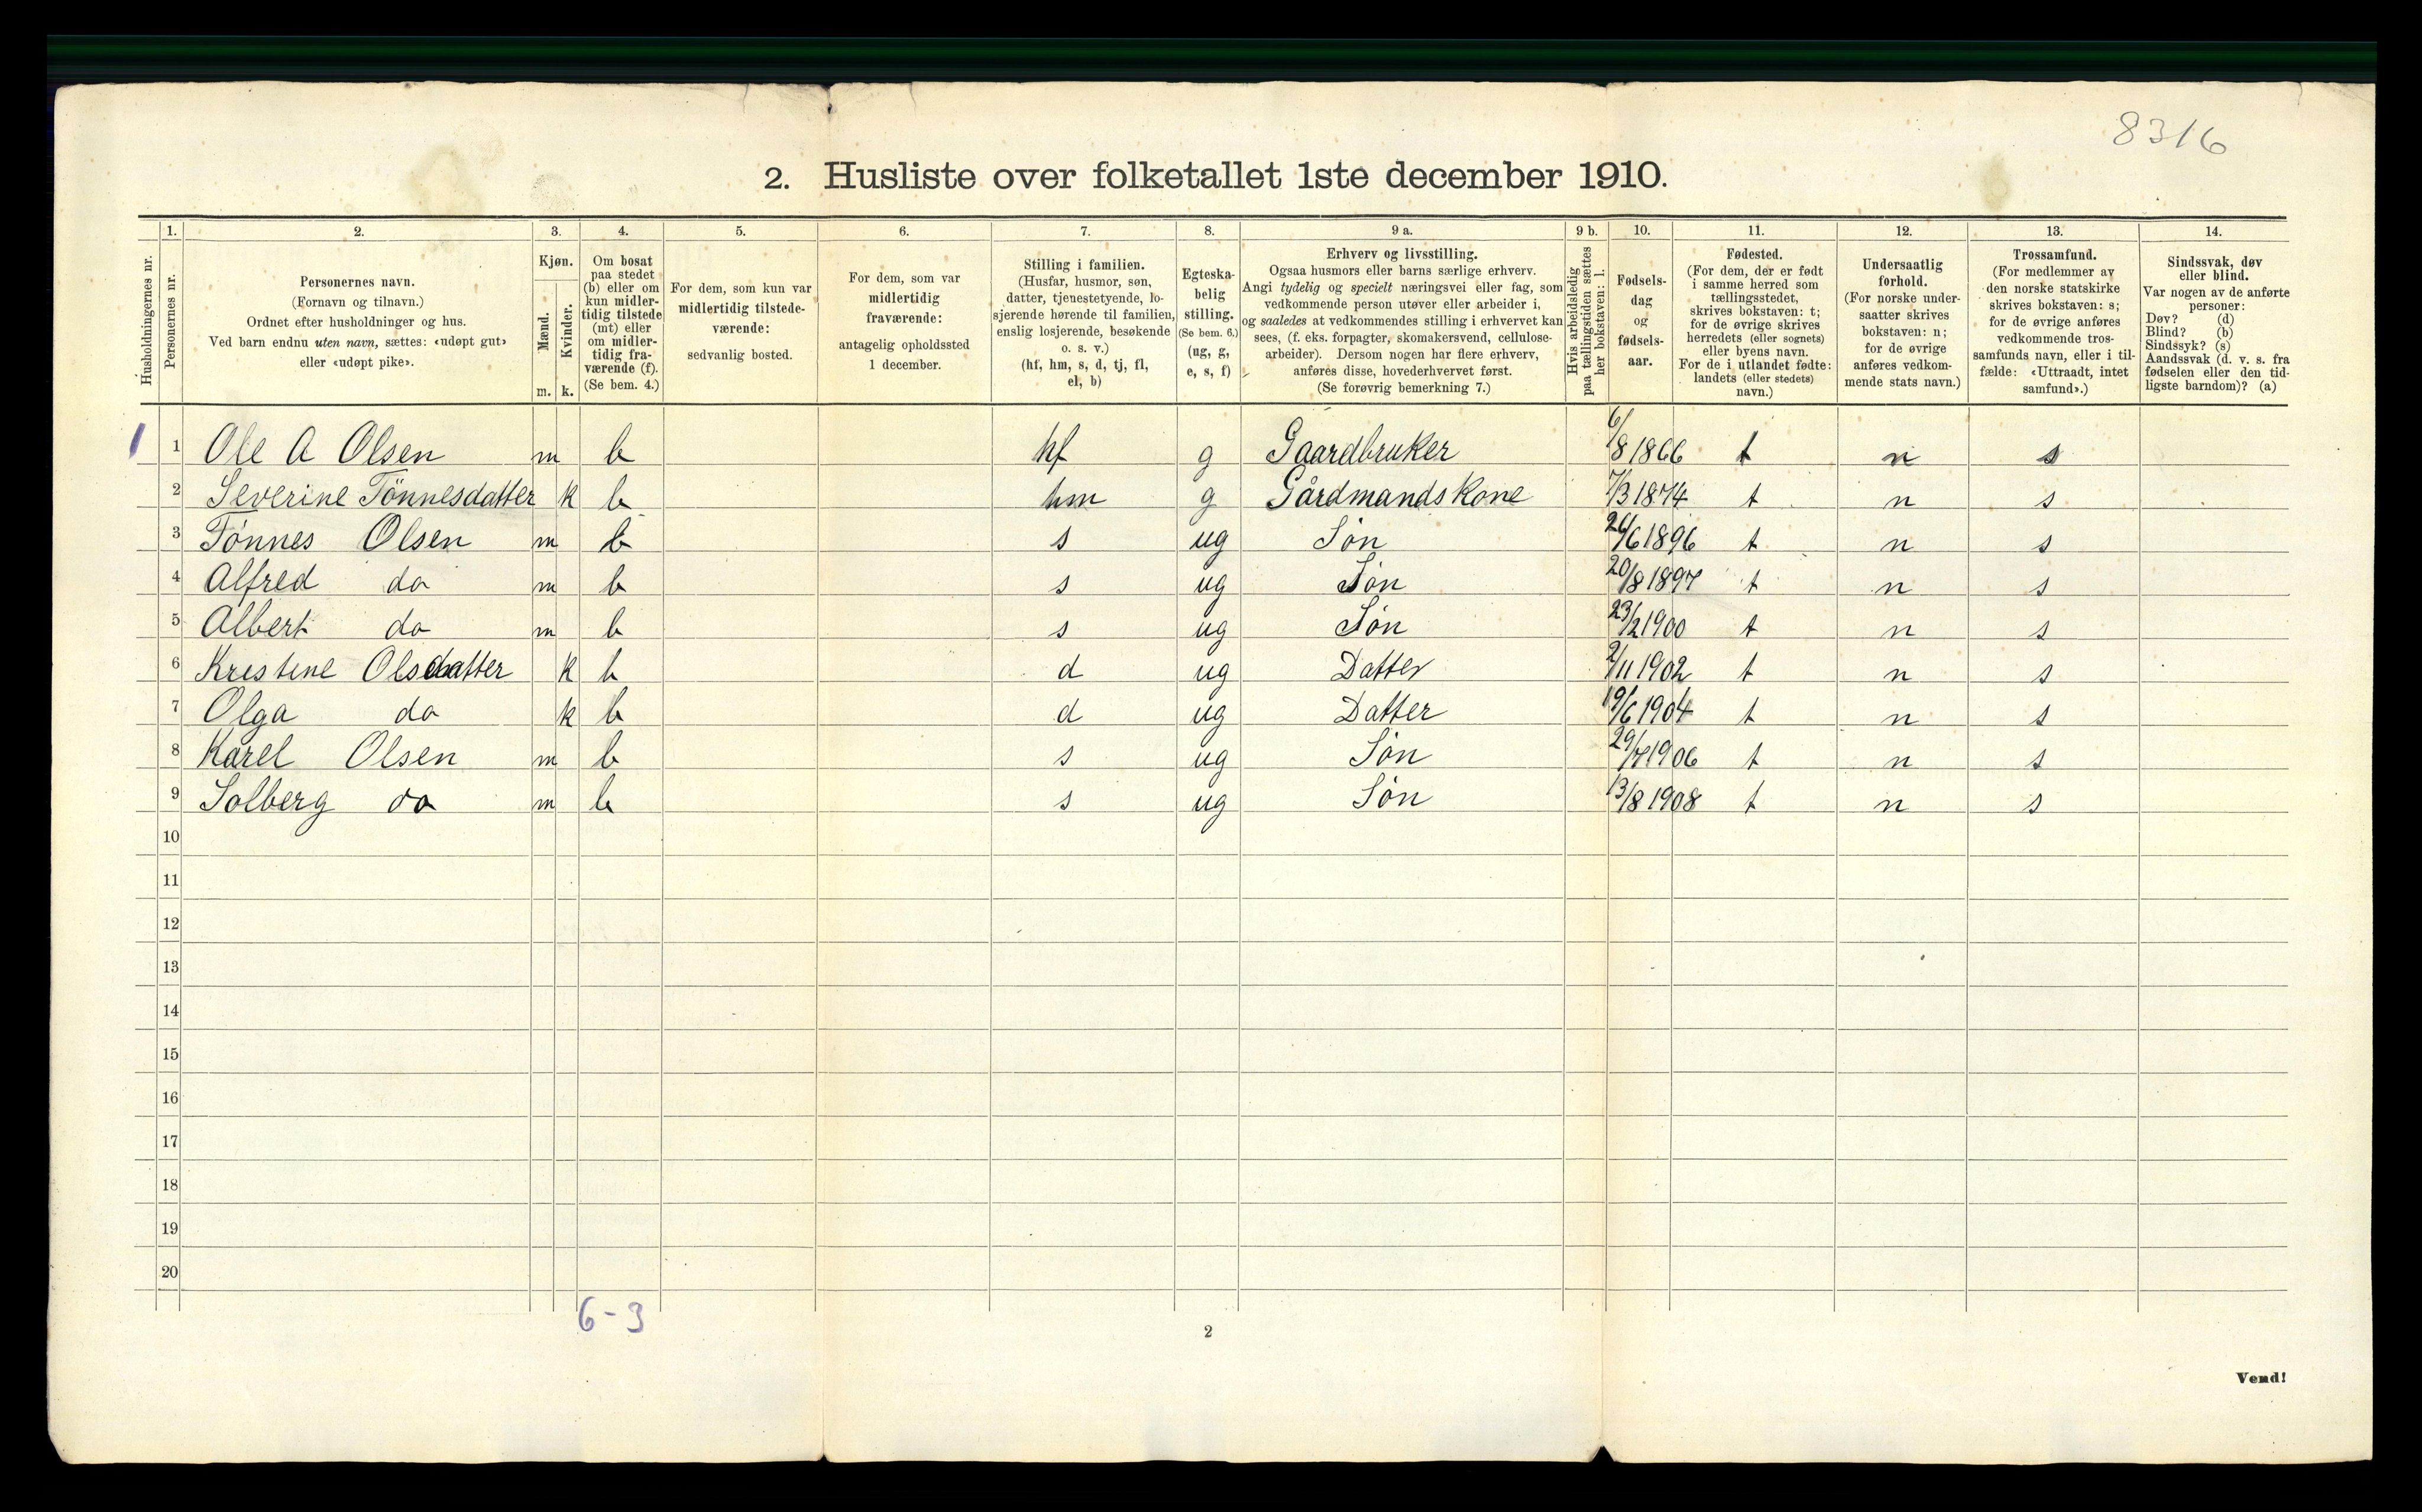 8316
2. Husliste over folketallet 1ste december 1910.
Husholdningernes nr.
1.
Personernes nr.
2.
Personernes navn.
(Fornavn og tilnavn.)
Ordnet efter husholdninger og hus.
Ved barn endnu uten navn, sættes: «udøpt gut»
eller «udøpt pike».
3.
Kjøn.
Mænd.
m.
Kvinder.
k.
4.
Om bosat
paa stedet
(b) eller om
kun midler-
tidig tilstede
(mt) eller
om midler-
tidig fra-
værende (f).
(Se bem. 4.)
5.
For dem, som kun var
midlertidig tilstede-
værende:
sedvanlig bosted.
6.
For dem, som var
midlertidig
fraværende:
antagelig opholdssted
1 december.
7.
Stilling i familien.
(Husfar, husmor, søn,
datter, tjenestetyende, lo-
sjerende hørende til familien,
enslig losjerende, besøkende
o. s. v.)
(hf, hm, s, d, tj, fl,
el, b)
8.
Egteska-
belig
stilling.
(Se bem. 6.)
(ug, g,
e, s, f)
9 a.
Erhverv og livsstilling.
Ogsaa husmors eller barns særlige erhverv.
Angi tydelig og specielt næringsvei eller fag, som
vedkommende person utøver eller arbeider i,
og saaledes at vedkommendes stilling i erhvervet kan
sees, (f. eks. forpagter, skomakersvend, cellulose-
arbeider). Dersom nogen har flere erhverv,
anføres disse, hovederhvervet først.
(Se forøvrig bemerkning 7.)
9 b.
Hvis arbeidsledig
paa tællingstiden sættes
her bokstaven: l.
10.
Fødsels-
dag
og
fødsels-
aar.
11.
Fødested.
(For dem, der er født
i samme herred som
tællingsstedet,
skrives bokstaven: t;
for de øvrige skrives
herredets (eller sognets)
eller byens navn.
For de i utlandet fødte:
landets (eller stedets)
navn.)
12.
Undersaatlig
forhold.
(For norske under-
saatter skrives
bokstaven: n;
for de øvrige
anføres vedkom-
mende stats navn.)
13.
Trossamfund.
(For medlemmer av
den norske statskirke
skrives bokstaven: s;
for de øvrige anføres
vedkommende tros-
samfunds navn, eller i til-
fælde: «Uttraadt, intet
samfund».)
14.
Sindssvak, døv
eller blind.
Var nogen av de anførte
personer:
Døv? (d)
Blind? (b)
Sindssyk? (s)
Aandssvak (d. v. s. fra
fødselen eller den tid-
ligste barndom)? (a)
1 1 Ole A Olsen m b hf g Gaardbruker 6/8 1866 t n s
2 Severine Tönnesdatter k b hm g Gårdmandskone 7/3 1874 t n s
3 Tönnes Olsen m b s ug Sön 26/6 1896 t n s
4 Alfred do m b s ug Sön 20/8 1897 t n s
5 Albert do m b s ug Sön 23/2 1900 t n s
6 Kristene Olsdatter k b d ug Datter 2/11 1902 t n s
7 Olga do k b d ug Datter 19/6 1904 t n s
8 Karel Olsen m b s ug Sön 29/7 1906 t n s
9 Solberg do m b s ug Sön 13/8 1908 t n s
10
11
12
13
14
15
16
17
18
19
20
6-3
2
Vend!